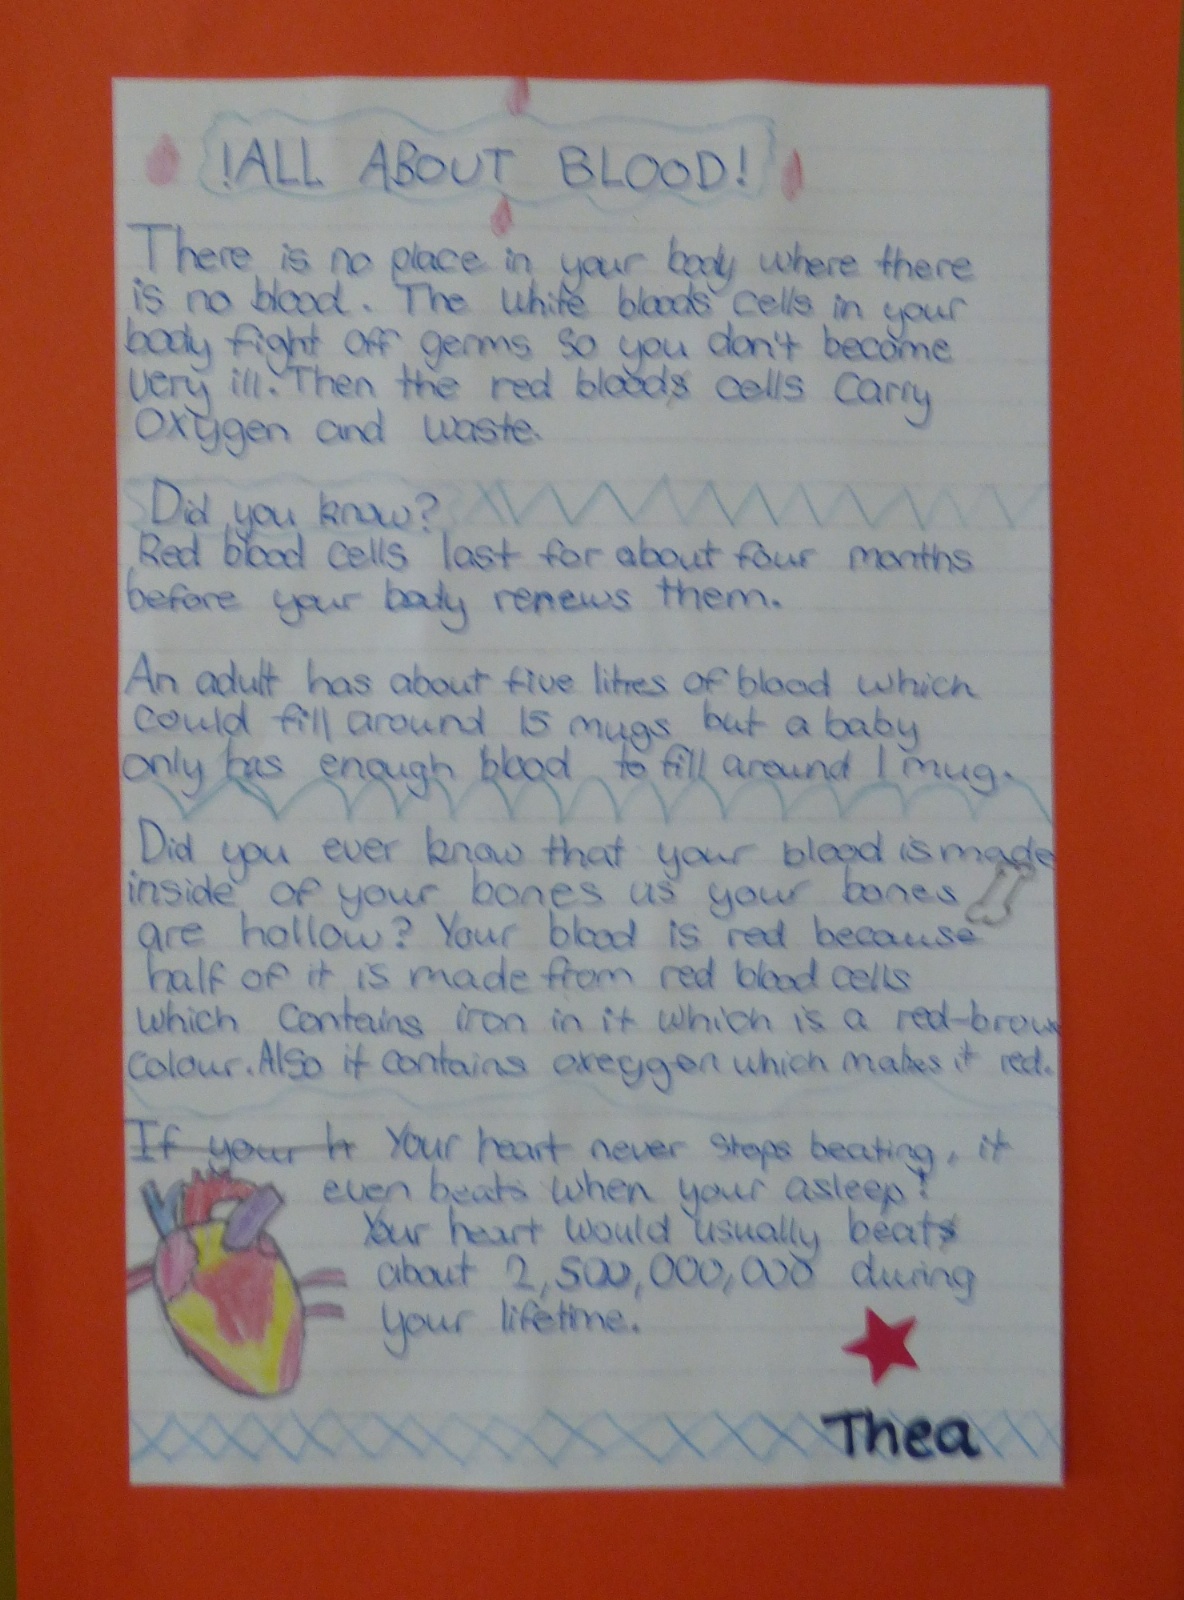 !ALL ABOUT BLOOD!
There is no place in your body where there
is no blood. The white bloods cells in your
body fight off germs so you don't become
very ill. Then the red bloods cells carry
oxygen and waste.
Did you know?
Red blood cells last for about four months
before your body renews them.
An adult has about five litres of blood which
could fill around 15 mugs but a baby
only has enough blood to fill around 1 mug.
Did you ever know that your blood is made
inside of your bones as your bones
are hollow? Your blood is red because
half of it is made from red blood cells
which contains iron in it which is a red-brown
colour. Also it contains oxeygen which makes it red.
If your h Your heart never stops beating, it
even beats when your asleep!
Your heart would usually beats
about 2,500,000,000 during
your lifetime.
Thea